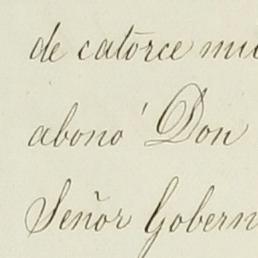 de catorce mi
abonó Don
Señor Gobern